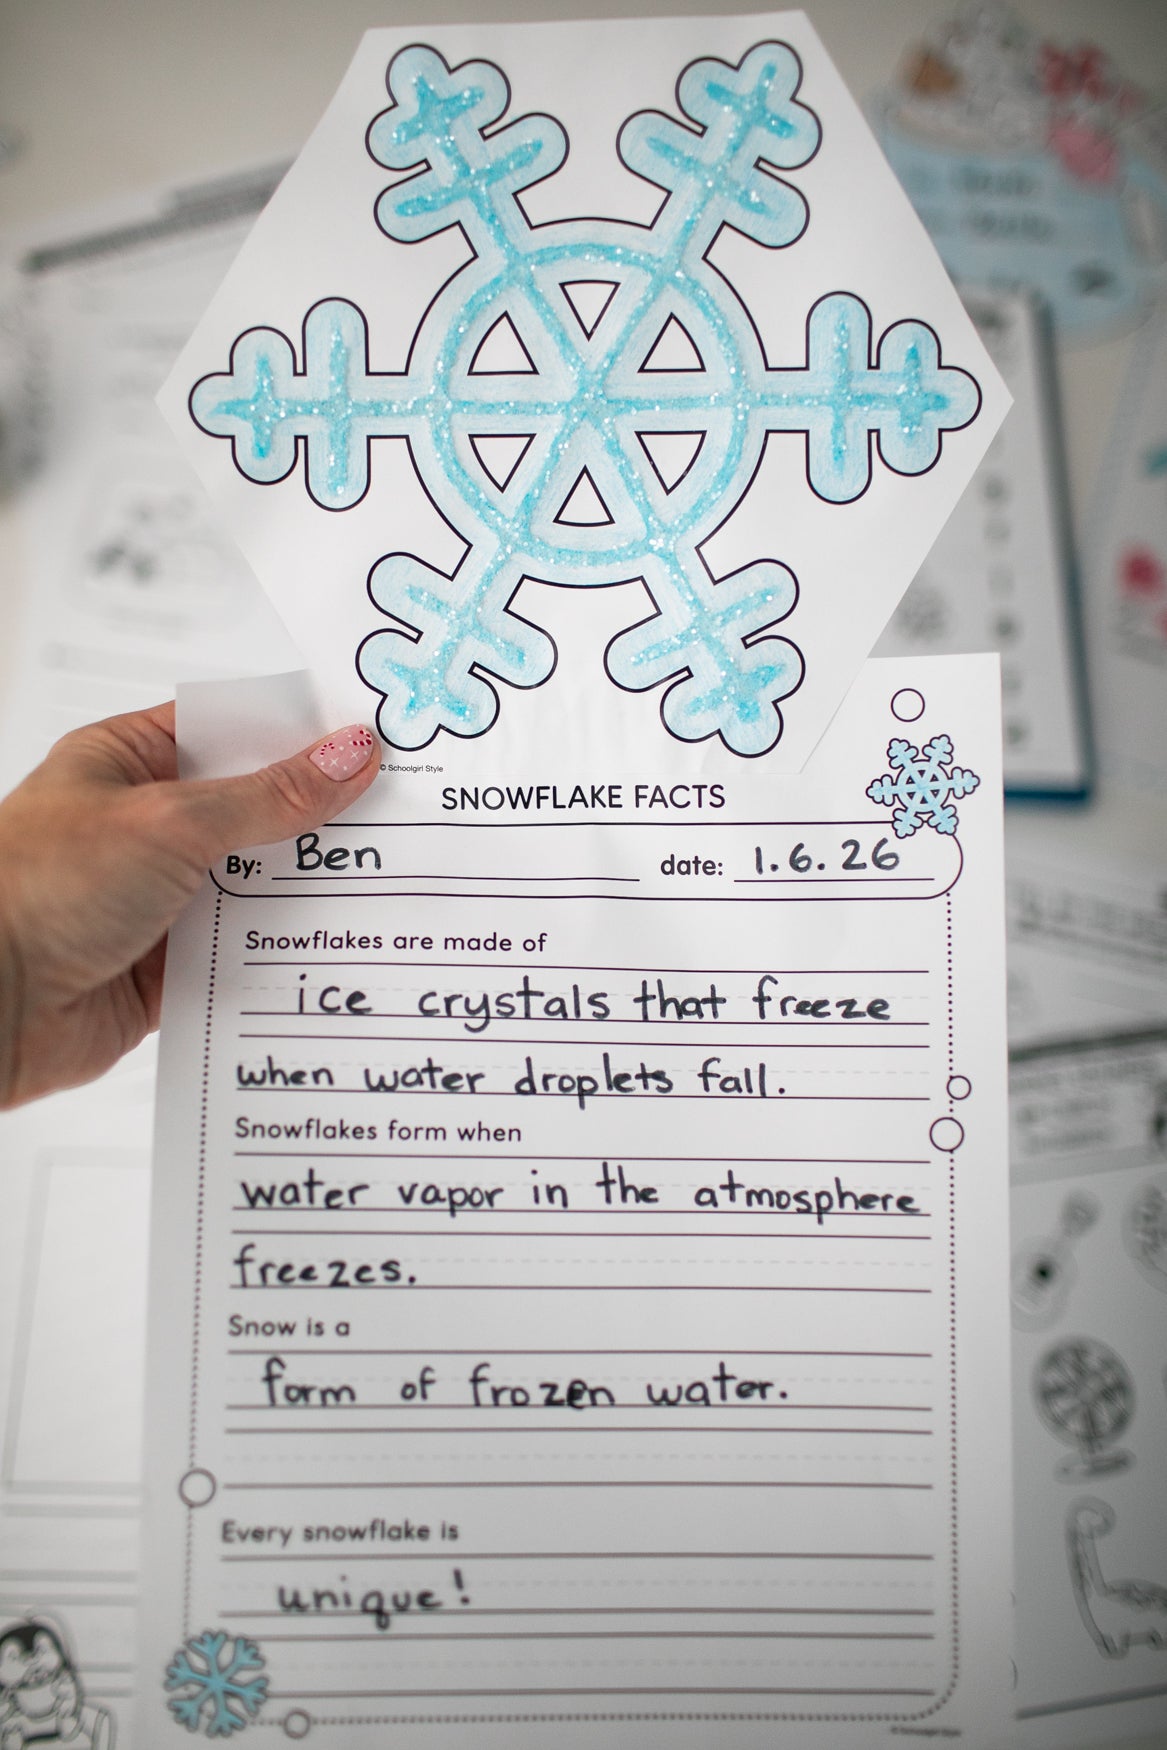 © Schoolgirl Style
SNOWFLAKE FACTS
By: Ben date: 1.6.26
Snowflakes are made of
ice crystals that freeze
when water droplets fall.
Snowflakes form when
water vapor in the atmosphere
freezes.
Snow is a
form of frozen water.
Every snowflake is
unique!
© Schoolgirl Style